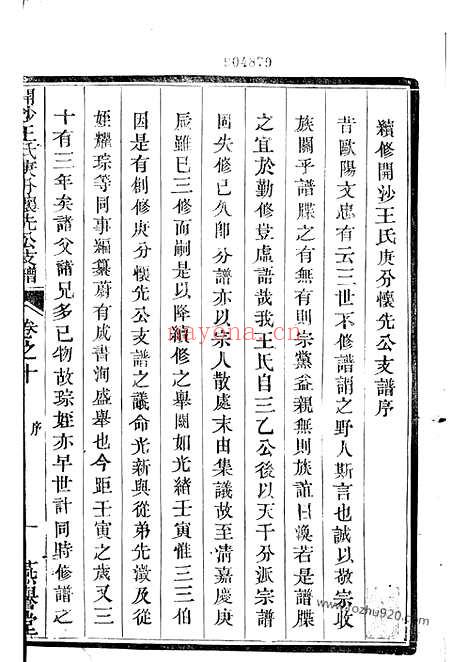 904879
續修開沙王氏庚分懷先公支譜序
昔歐陽文忠有云三世不修譜誚之野人斯言也誠以敬宗收
族關乎譜牒之有無有則宗黨益親無則族誼日渙若是譜牒
之宜於勤修豈虛語哉我王氏自三乙公後以天干分派宗譜
固失修已久卽分譜亦以宗人散處末由集議故至淸嘉慶庚
辰雖已三修而嗣是以降續修之舉闕如光緒壬寅惟三三伯
因是有創修庚分懷先公支譜之議命光新與從弟先瀓及從
姪耀琮等同事編纂蔚有成書洵盛舉也今距壬寅之歲又三
十有三年矣諸父諸兄多已物故琮姪亦早世計同時修譜之
開沙王氏庚分懷先公支譜
卷之十
序
一
燕譽堂
nayona.cn
www.pozhu920.com